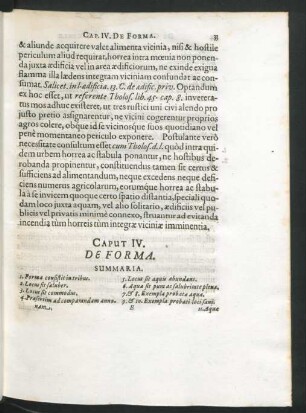 CAP. IV. DE FORMA. 33
& aliunde acquirere valet alimenta vicinia, nisi & hostile
periculum aliud requirat, horrea intra mœnia non ponen-
da juxta ædificia vel in area ædificiorum, ne exinde exigua
flamma illa lædens integram viciniam confundat ac con-
sumat. Salicet. in l. ædificia. 13. C. de ædific. priv. Optandum
ex hoc esset, ut referente Tholos. lib. 45. cap. 8. invetera-
tus mos adhuc existeret, ut tres rustici uni civi alendo pro
justo pretio assignarentur, ne vicini cogerentur proprios
agros colere, obque id se vicinosque suos quondiano vel
penè momentaneo periculo exponere. Postulante verò
necessitate consultum esset cum Tholos. d. l. quòd intra qui-
dem urbem horrea ac stabula ponantur, ne hostibus de-
robanda propinentur, constituendus tamen sit certus &
sufficiens ad alimentandum, neque excedens neque defi-
ciens numerus agricolarum, eorumque horrea ac stabu-
la à se invicem quoque certo spatio distantia, speciali quo-
dam loco juxta aquam, vel alio solitario, ædificiis vel pu-
blicis vel privatis minimè connexo, struantur ad evitanda
incendia tùm horreis tùm integræ viciniæ imminentia.
CAPUT IV.
DE FORMA.
SUMMARIA.
1. Forma consistit in tribus.
2. Locus sit saluber.
3. Locus sit commodus.
4. Præsertim ad comparandam anno-
nam.
5. Locus sit aquis abundans.
6. Aqua sit pura ac salubritate plena.
7. & 8. Exempla probatæ aquæ.
9. & 10. Exempla probati loci sani.
E
11. Aqua